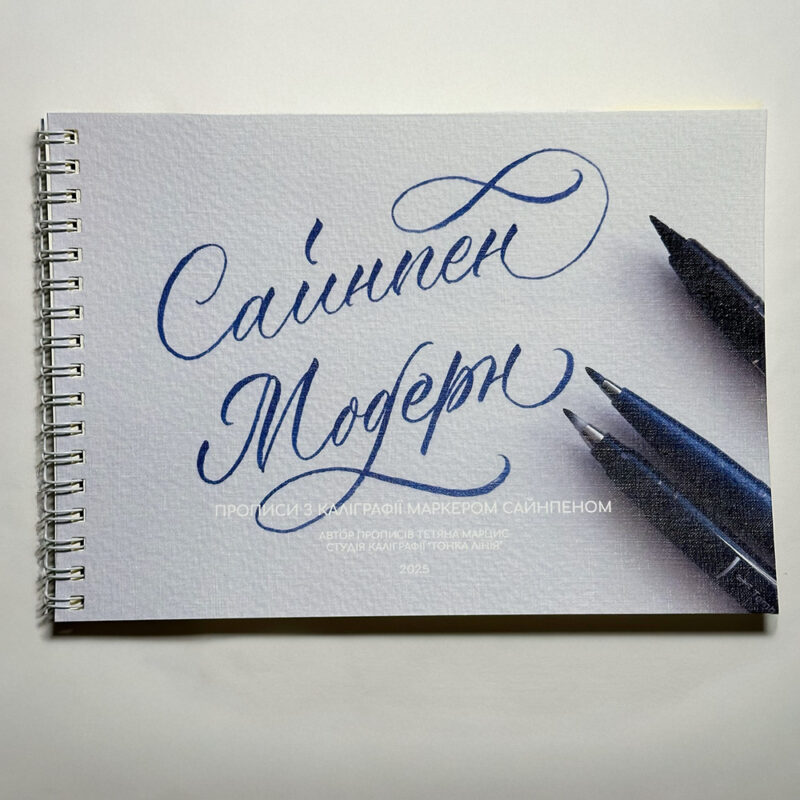 Сайнпен
Модерн
ПРОПИСИ З КАЛІГРАФІЇ МАРКЕРОМ САЙНПЕНОМ
АВТОР ПРОПИСІВ ТЕТЯНА МАРЦИС
СТУДІЯ КАЛІГРАФІЇ "ТОНКА ЛІНІЯ"
2025